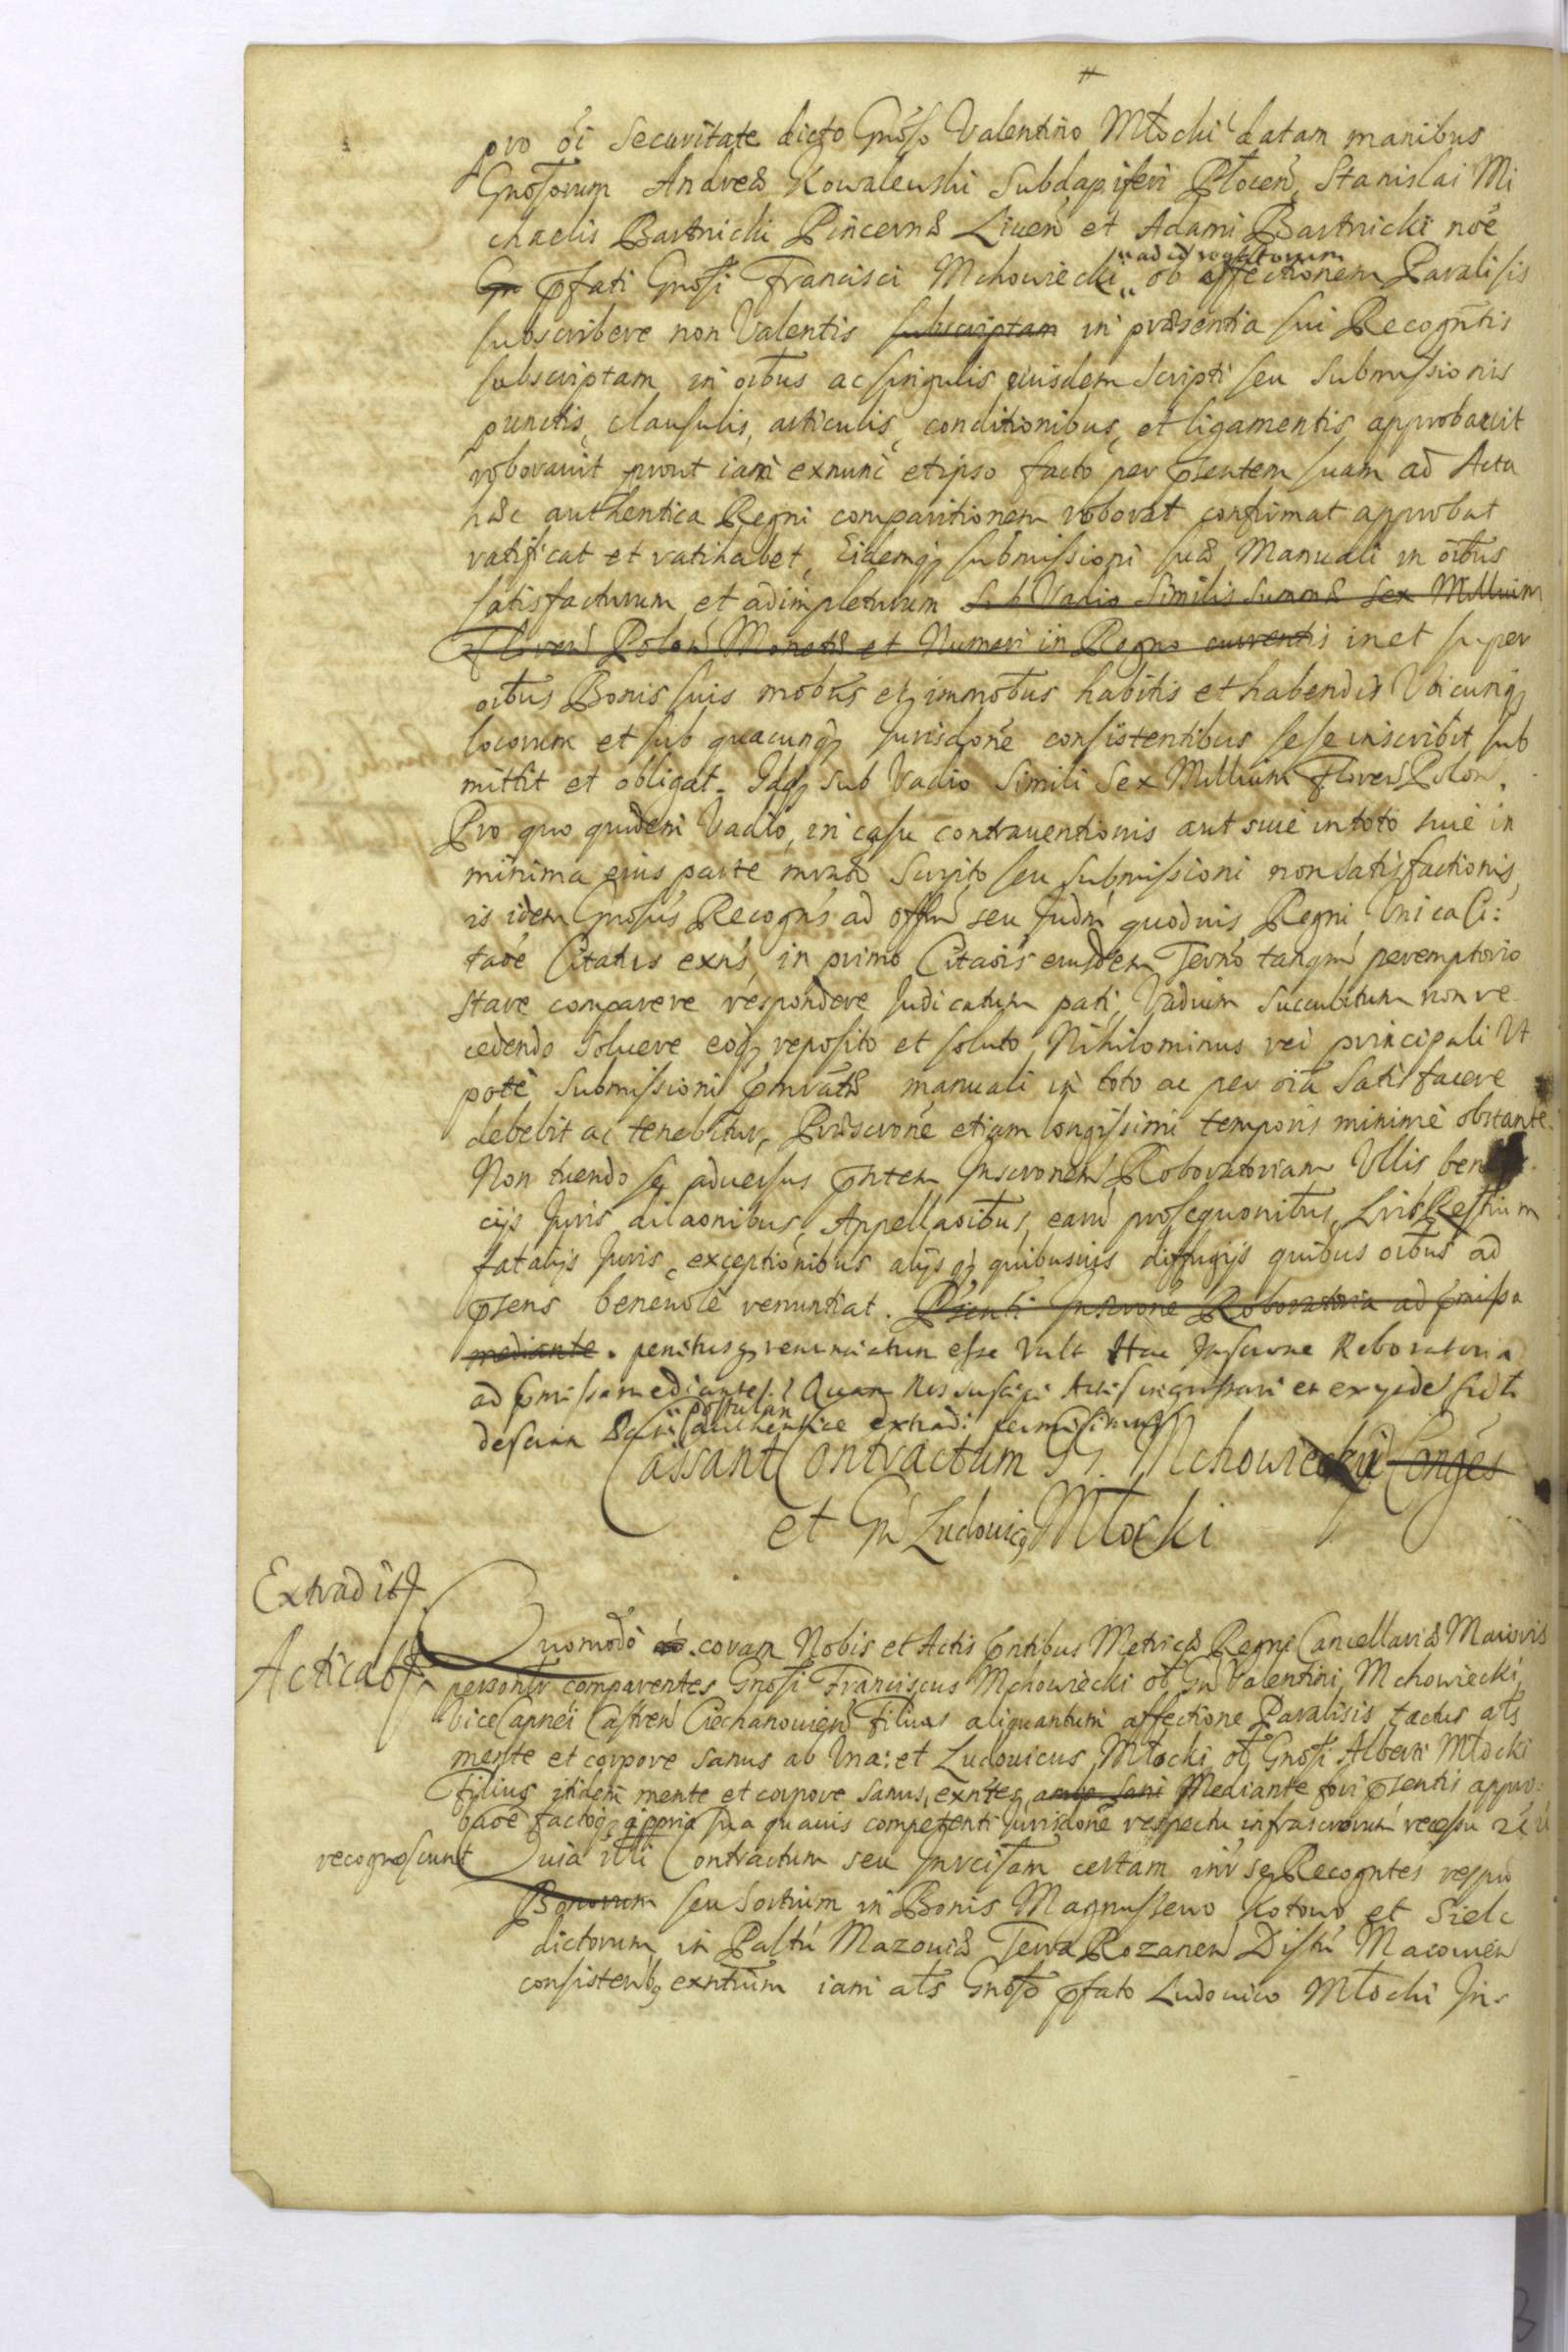 pro oi Securitate dicto Gnoso Valentino Młocki datam manibus
Gnosorum Andreæ Kowalewski Subdapiferi Płocen, Stanislai Mi
chaelis Bartnicki Pincernæ Liuen et Adami Bartnicki noe
Gn pfati Gnosi Francisci Mchowiecki ad id rogatorum ob affectionem Paralisis
subscribere non Valentis subscriptam in præsentia sui Recogntis
subscriptam in oibus ac singulis eiusdem Scripti seu Submissionis
punctis, clausulis, articulis, conditionibus, et ligamentis approbavit
roborauit prout iam exnunc et ipso facto per psentem suam ad Acta
hæc authentica Regni comparitionem roborat confirmat approbat
ratificat et ratihabet, Eidemq submissioni suæ Manuali in oibus
satisfacturum et adimpleturum sub Vadio Similis Summæ Sex Millium
Floren Polon Monetæ et Numeri in Regno currentis in et super
oibus Bonis suis mobus et immobus habitis et habendis Vbicunq
locorum et sub quacunq Jurisdone consistentibus sese inscribit sub
mittit et obligat. Idq sub Vadio Simili Sex Millium Floren Polon.
Pro quo quidem Vadio, in casu contrauentionis aut siue in toto siue in
minima eius parte mvato Scripto seu submissioni non satisfactionis,
is idem Gnosus Recogns ad offm seu Judm quoduis Regni Vnica Ci:
taoe Citatus exns, in primo Citaois eiusdem Termo tanqm peremptorio
stare comparere respondere Judicatum pati, Vadium succubitum non re
cedendo soluere eoq reposito et soluto, Nihilominus rei principali Vt
pote Submissioni pmvatæ manuali in toto ac per oia Satisfacere
debebit ac tenebitur, Præscrone etiam longissimi temporis minime obstante.
Non tuendo se aduersus pntem Inscronem Roboratoriam Vllis benefi
cijs Juris dilaonibus, Appellaoibus, earu prosequonibus, Lris
fatalijs Juris, exceptionibus alijsq quibusuis diffugijs quibus oibus ad
psens beneuole renuntiat. Psenti Inscrone Roboratoria ad pmissa
mediante. penitusq renunciatum esse Vult Hac Inscrone Roboratoria
ad pmissa mediante. Quam nos suscipi Actis ingrossari et ex ijsdem
postulan
authentice extradi permisimus
Cassant Contractum GG. Mchowiecki Conges
et Gn Ludouicq Młocki
Extradit
Acticat
Quomodo coram Nobis et Actis pntibus Metricæ Regni Cancellariæ Maioris
personlr comparentes Gnosi Franciscus Mchowiecki ol Gn Valentini Mchowiecki,
Vice Capnei Castren Ciechanouien Filius aliquantum affectione Paralisis tactus als
mente et corpore Sanus ab Vna: et Ludouicus Młocki ol Gnosi Alberti Młocki
Filius itidem mente et corpore Sanus, exntes, ambo sani Mediante fori psentis appro:
baoe factoq a ppria sua quauis competenti Jurisdone respectu infrascrorum recessu
recognoscunt Quia illi Contractum seu Inrcisam certam inr se Recogntes respu
Bonorum seu Sortium in Bonis Magnussewo Kotowo et Sielc
dictorum in Paltu Mazouiæ Terra Rozanen Distu Macouien
consistenbq exntium iam als Gnoso pfato Ludouico Młocki Ins